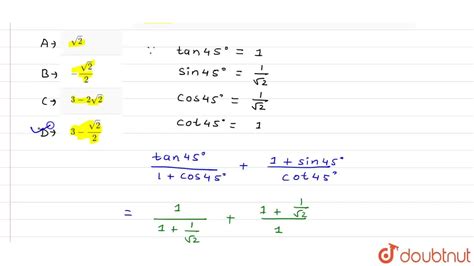 A→ √2
B→ -√2/2
C→ 3 - 2√2
D→ 3 - √2/2
∵ tan45° = 1
sin45° = 1/√2
cos45° = 1/√2
cot45° = 1
tan45°/(1 + cos45°) + (1 + sin45°)/cot45°
= 1/(1 + 1/√2) + (1 + 1/√2)/1
doubtnut